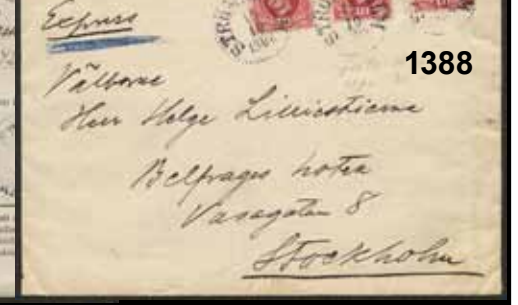 Express
1388
Välborne
Herr Helge Lilliestierna
Belfrages hotel
Vasagatan 8
Stockholm